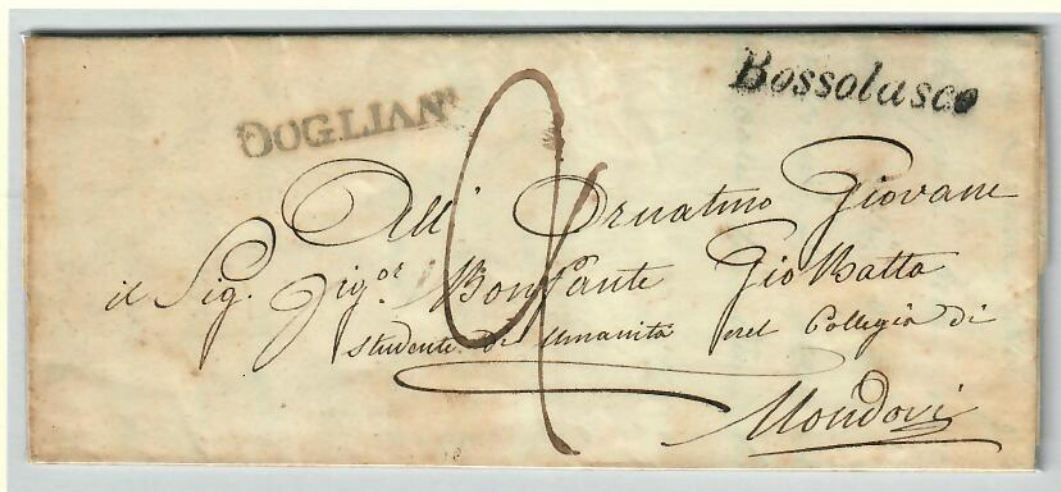 Bossolasco
DOGLIANI
All' Ornatmo Giovane
il Sig. Sig.or Bonfante Gio Batta
studente di Umanità nel Collegio di
Mondovi